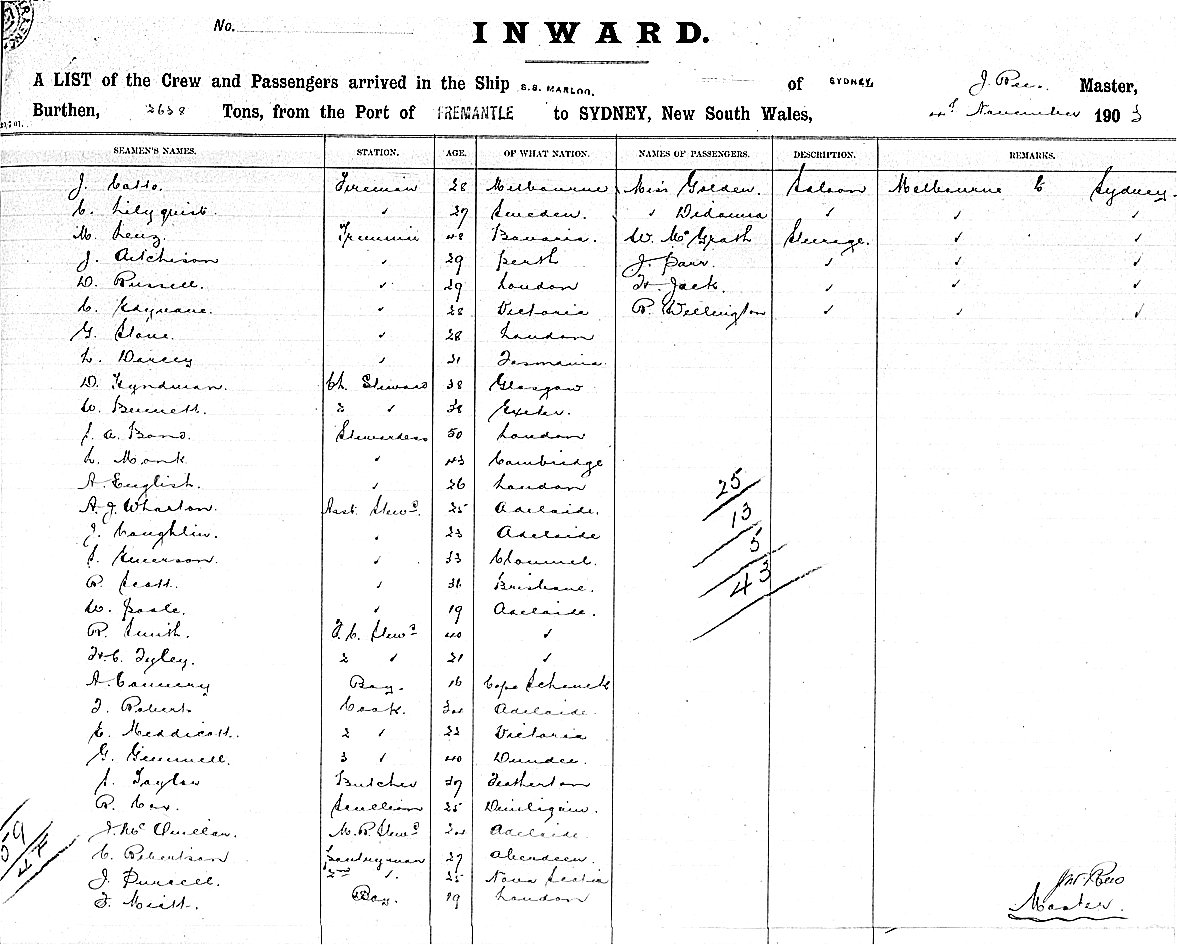 No.
INWARD.
A LIST of the Crew and Passengers arrived in the Ship S.S. MARLOO. of SYDNEY, J. Rees Master,
Burthen, 2628 Tons, from the Port of FREMANTLE to SYDNEY, New South Wales, November 1903
SEAMEN'S NAMES. STATION. AGE. OF WHAT NATION. NAMES OF PASSENGERS. DESCRIPTION. REMARKS.
J. Fireman 28 Melbourne Miss Golden. Saloon Melbourne to Sydney.
C. Lilyquist. " 27 Sweden. " " " "
M. Lenz Trimmer 48 Bavaria. W. McGrath Steerage. " "
J. Aitchison " 29 Perth J. Parr " " "
D. Russell. " 29 London H. Jack. " " "
C. " 28 Victoria R. Wellington " " "
G. Stone. " 28 London
L. Darcey " 31 Tasmania.
D. Hyndman. Ch. Steward 38 Glasgow
W. Bennett. 2 " 38 Exeter.
J. A. Bond. Stewardess 50 London
L. Monk " 43 Cambridge
A. English. " 26 London
25
A. J. Wharton. Asst. Stewd. 25 Adelaide.
13
J. Coughlin. " 23 Adelaide
5
S. " 33
43
R. Scott. " 36 Brisbane.
W. Poole. " 19 Adelaide.
R. Smith. F. C. Stewd. 40 "
H. C. Tyley. 2 " 21 "
A. Boy. 16 Cape Schanck
F. Robert Cook. Adelaide.
E. Meddicott. 2 " 22 Victoria
G. Gemmell. 3 " 40 Dundee.
S. Taylor Butcher 37
R. Cox. Scullion 25
J. McQuillan. M. R. Stewd. Adelaide
59
C. Robertson Pantryman 27 Aberdeen.
47
J. Purcell. 2nd ". 25 Nova Scotia
F. Boy. 19 London
Jno Rees
Master.